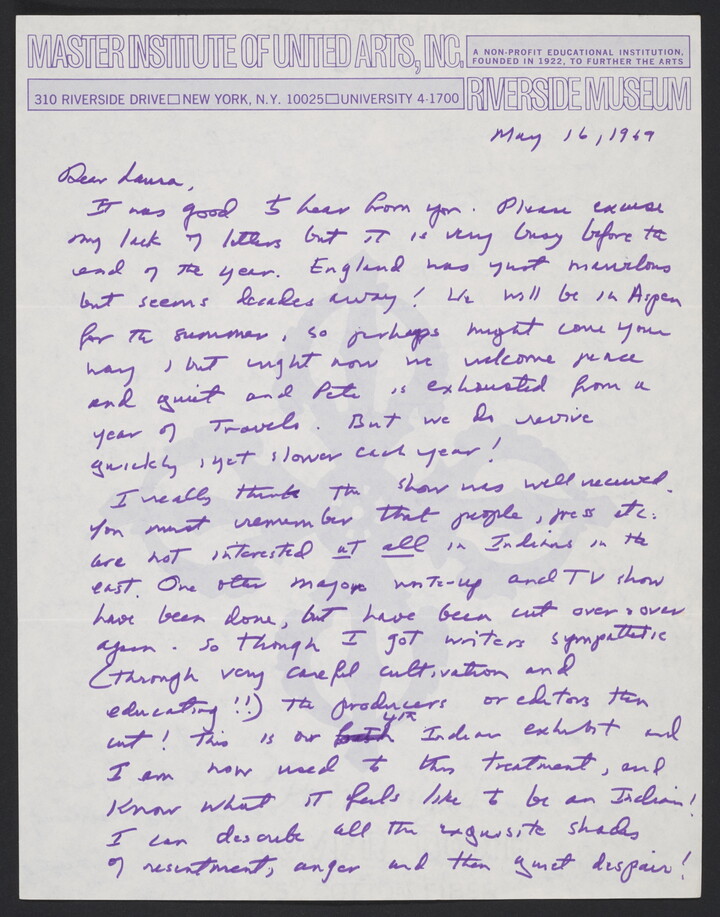 MASTER INSTITUTE OF UNITED ARTS, INC.
A NON-PROFIT EDUCATIONAL INSTITUTION,
FOUNDED IN 1922, TO FURTHER THE ARTS
310 RIVERSIDE DRIVE□NEW YORK, N.Y. 10025□UNIVERSITY 4-1700
RIVERSIDE MUSEUM
May 16, 1969
Dear Laura,
It was good to hear from you. Please excuse
my lack of letters but it is very busy before the
end of the year. England was just marvelous
but seems decades away! We will be in Aspen
for the summer, so perhaps might come your
way, but right now we welcome peace
and quiet and Pete is exhausted from a
year of Travels. But we do revive
quickly, yet slower each year!
I really think the show was well received.
You must remember that people, press etc.
are not interested at all in Indians in the
east. One other major write-up and TV show
have been done, but have been cut over & over
again. So though I got writers sympathetic
(through very careful cultivation and
educating!!) the producers or editors then
cut! This is our 4th Indian exhibit and
I am now used to this treatment, and
know what it feels like to be an Indian!
I can describe all the exquisite shades
of resentment, anger and then quiet despair!